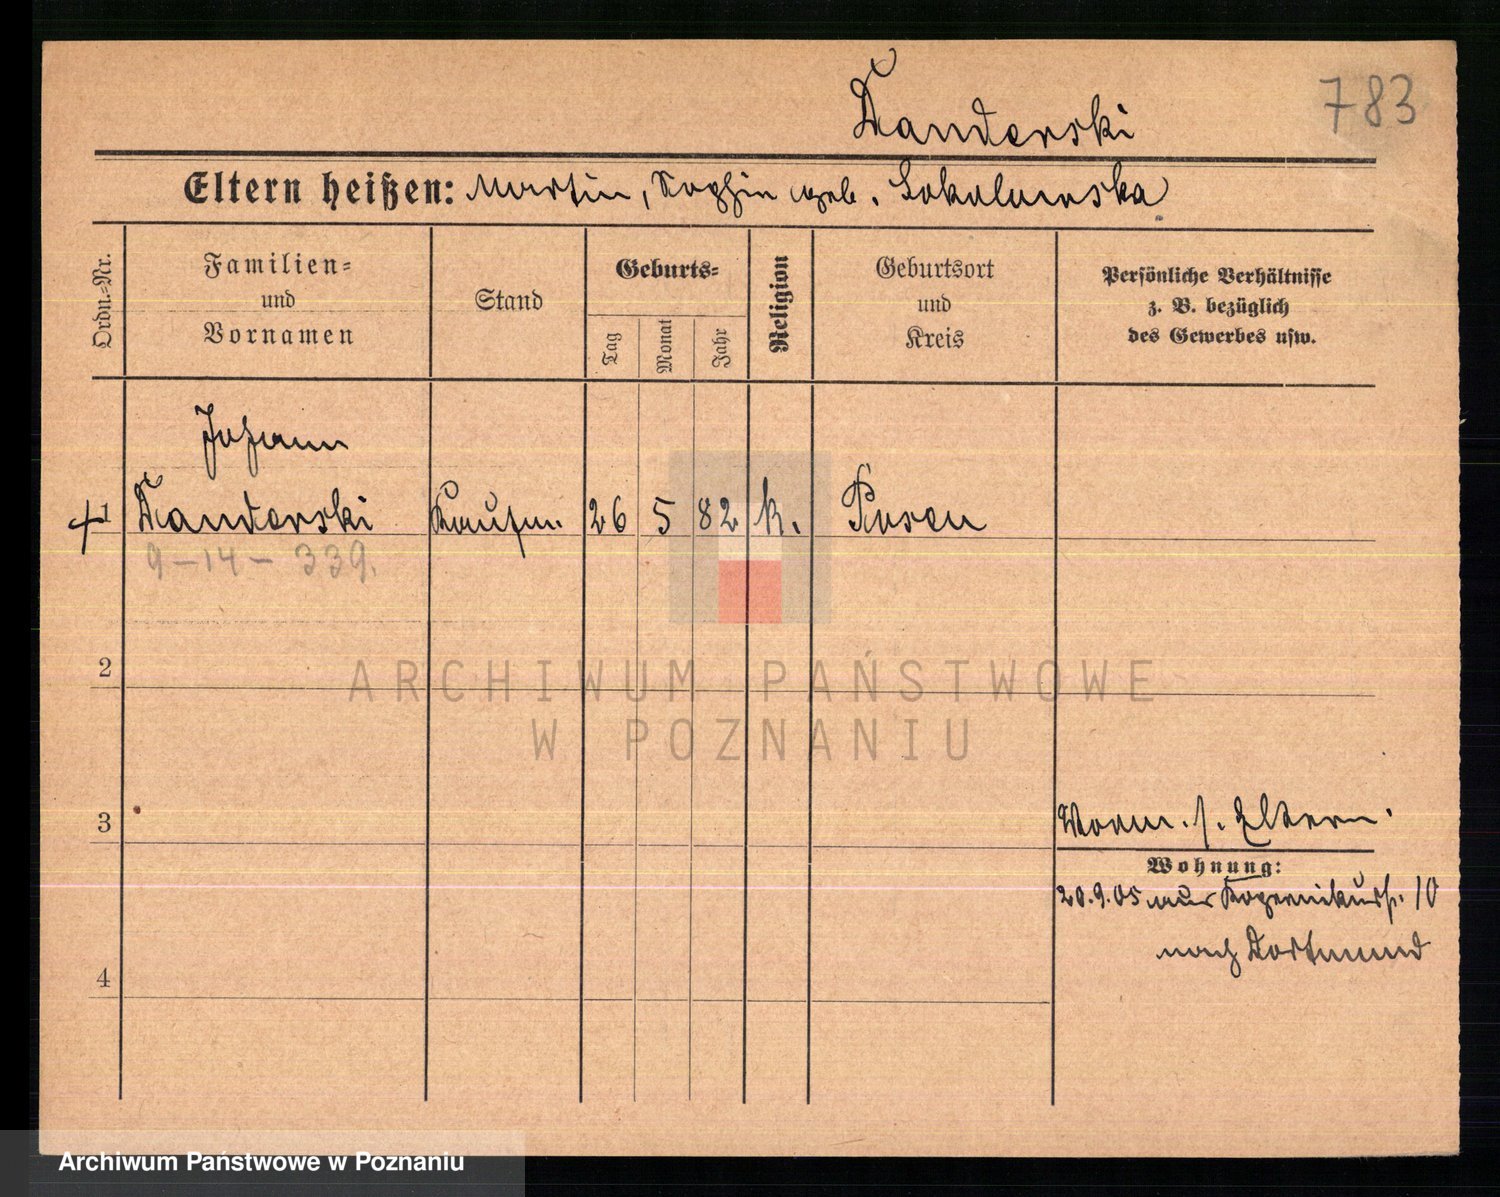 Danderski
783
Eltern heißen: Martin, Sophie geb. Sokolowska
Ordn.=Nr.
Familien=
und
Vornamen
Stand
Geburts=
Tag
Monat
Jahr
Religion
Geburtsort
und
Kreis
Persönliche Verhältnisse
z. B. bezüglich
des Gewerbes usw.
Johann
1 Danderski Kaufm. 26 5 82 k. Posen
9-14-339.
2
ARCHIWUM PAŃSTWOWE
W POZNANIU
3
Vorm. s. Eltern.
Wohnung:
20.9.05 aus Kopernikusstr. 10
nach Dortmund
4
Archiwum Państwowe w Poznaniu